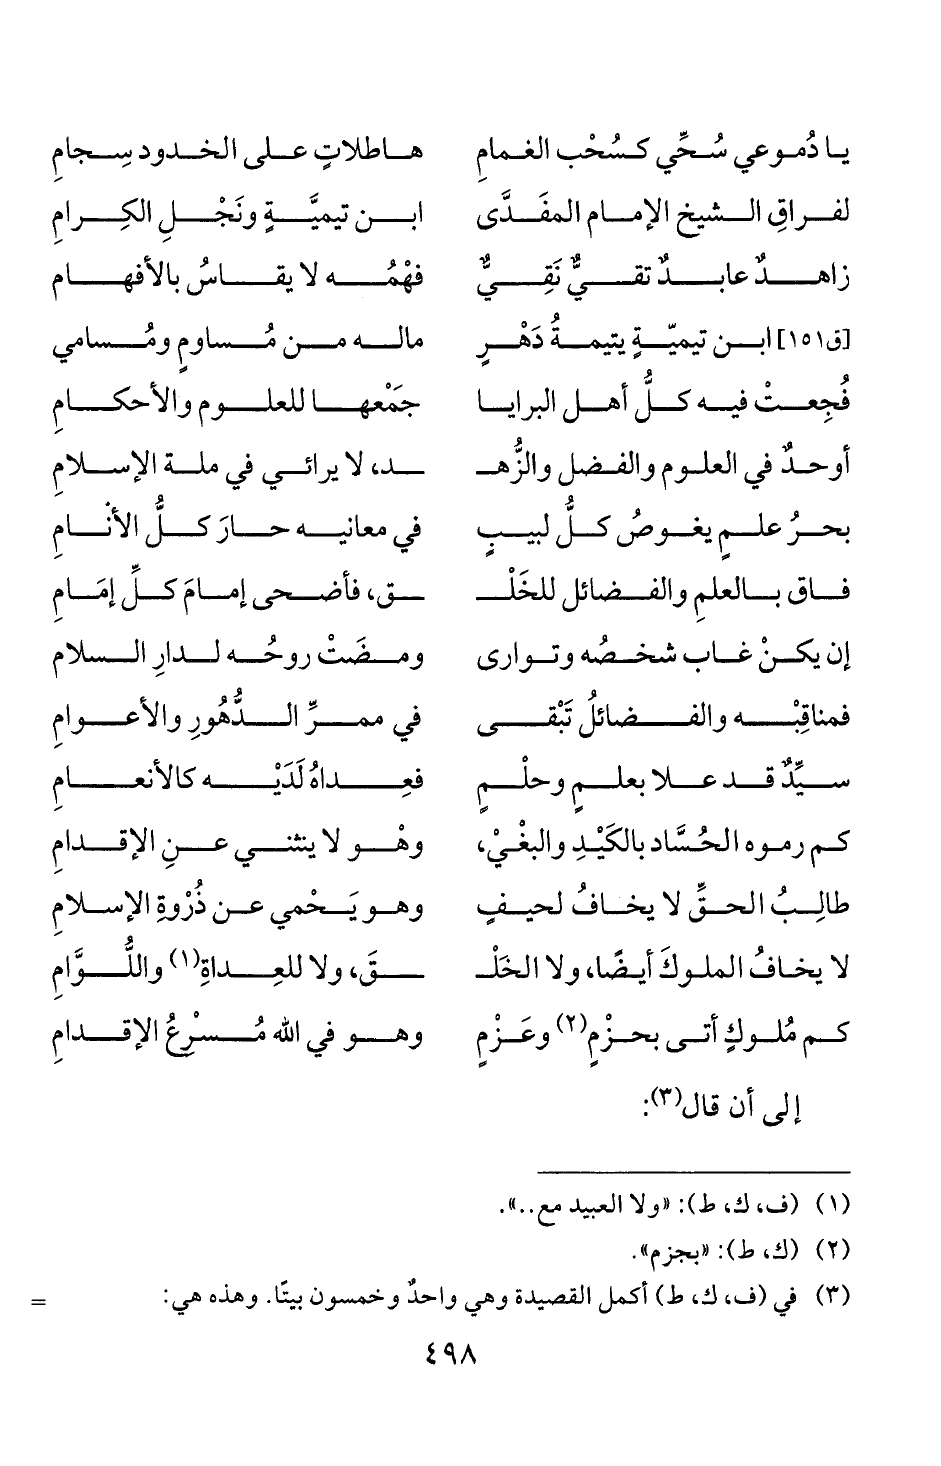 يا دُموعي سُحِّي كسُحْب الغمامِ هاطلاتٍ على الخدود سِجامِ
لفراقِ الشيخ الإمام المفَدَّى ابن تيميَّةٍ ونَجْلِ الكِرامِ
زاهدٌ عابدٌ تقيٌّ نَقِيٌّ فهْمُه لا يقاسُ بالأفهامِ
[ق١٥١] ابن تيميّةٍ يتيمةُ دَهْرٍ ماله من مُساومٍ ومُسامي
فُجعتْ فيه كلُّ أهل البرايا جَمْعها للعلوم والأحكامِ
أوحدٌ في العلوم والفضل والزُّهـ ـد، لا يرائي في ملة الإسلامِ
بحرُ علمٍ يغوصُ كلُّ لبيبٍ في معانيه حارَ كلُّ الأنامِ
فاق بالعلمِ والفضائل للخَلْـ ـق، فأضحى إمامَ كلِّ إمَامِ
إن يكنْ غاب شخصُه وتوارى ومضَتْ روحُه لدارِ السلامِ
فمناقِبْه والفضائلُ تَبْقى في ممرِّ الدُّهُورِ والأعوامِ
سيِّدٌ قد علا بعلمٍ وحلْمٍ فعِداهُ لَدَيْه كالأنعامِ
كم رموه الحُسَّاد بالكَيْدِ والبغْيِ، وهْو لا ينثني عنِ الإقدامِ
طالِبُ الحقِّ لا يخافُ لحيفٍ وهو يَحْمي عن ذُرْوةِ الإسلامِ
لا يخافُ الملوكَ أيضًا، ولا الخَلْـ ـقَ، ولا للعِداةِ(١) واللُّوَّامِ
كم مُلوكٍ أتى بحزْمٍ(٢) وعَزْمٍ وهو في الله مُسْرِعُ الإقدامِ
إلى أن قال(٣):
(١) (ف، ك، ط): «ولا العبيد مع..».
(٢) (ك، ط): «بجزم».
(٣) في (ف، ك، ط) أكمل القصيدة وهي واحدٌ وخمسون بيتًا. وهذه هي: =
٤٩٨